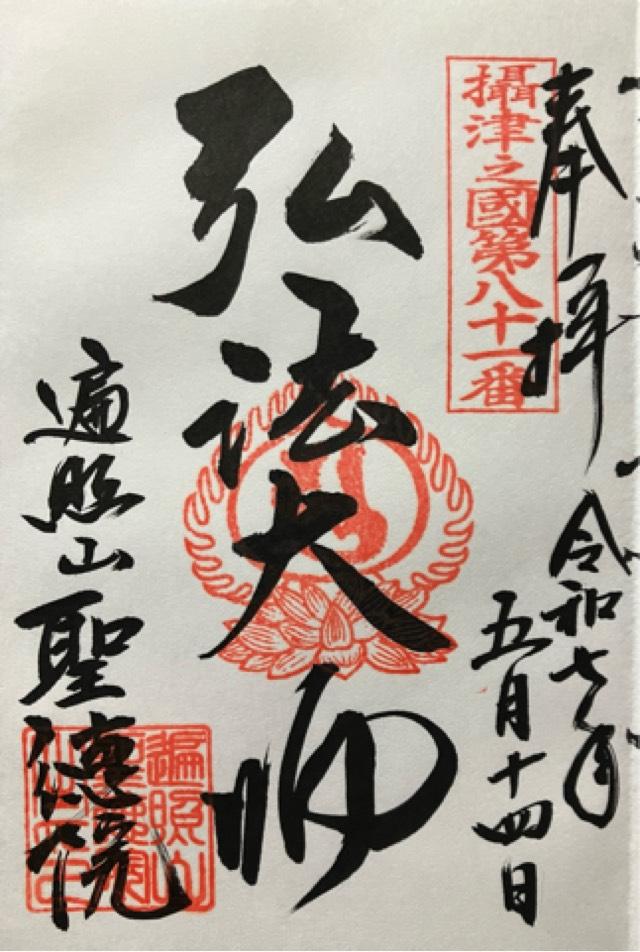 奉拝
令和七年
五月十四日
攝津之國第八十一番
弘法大師
遍照山聖徳院
遍照山